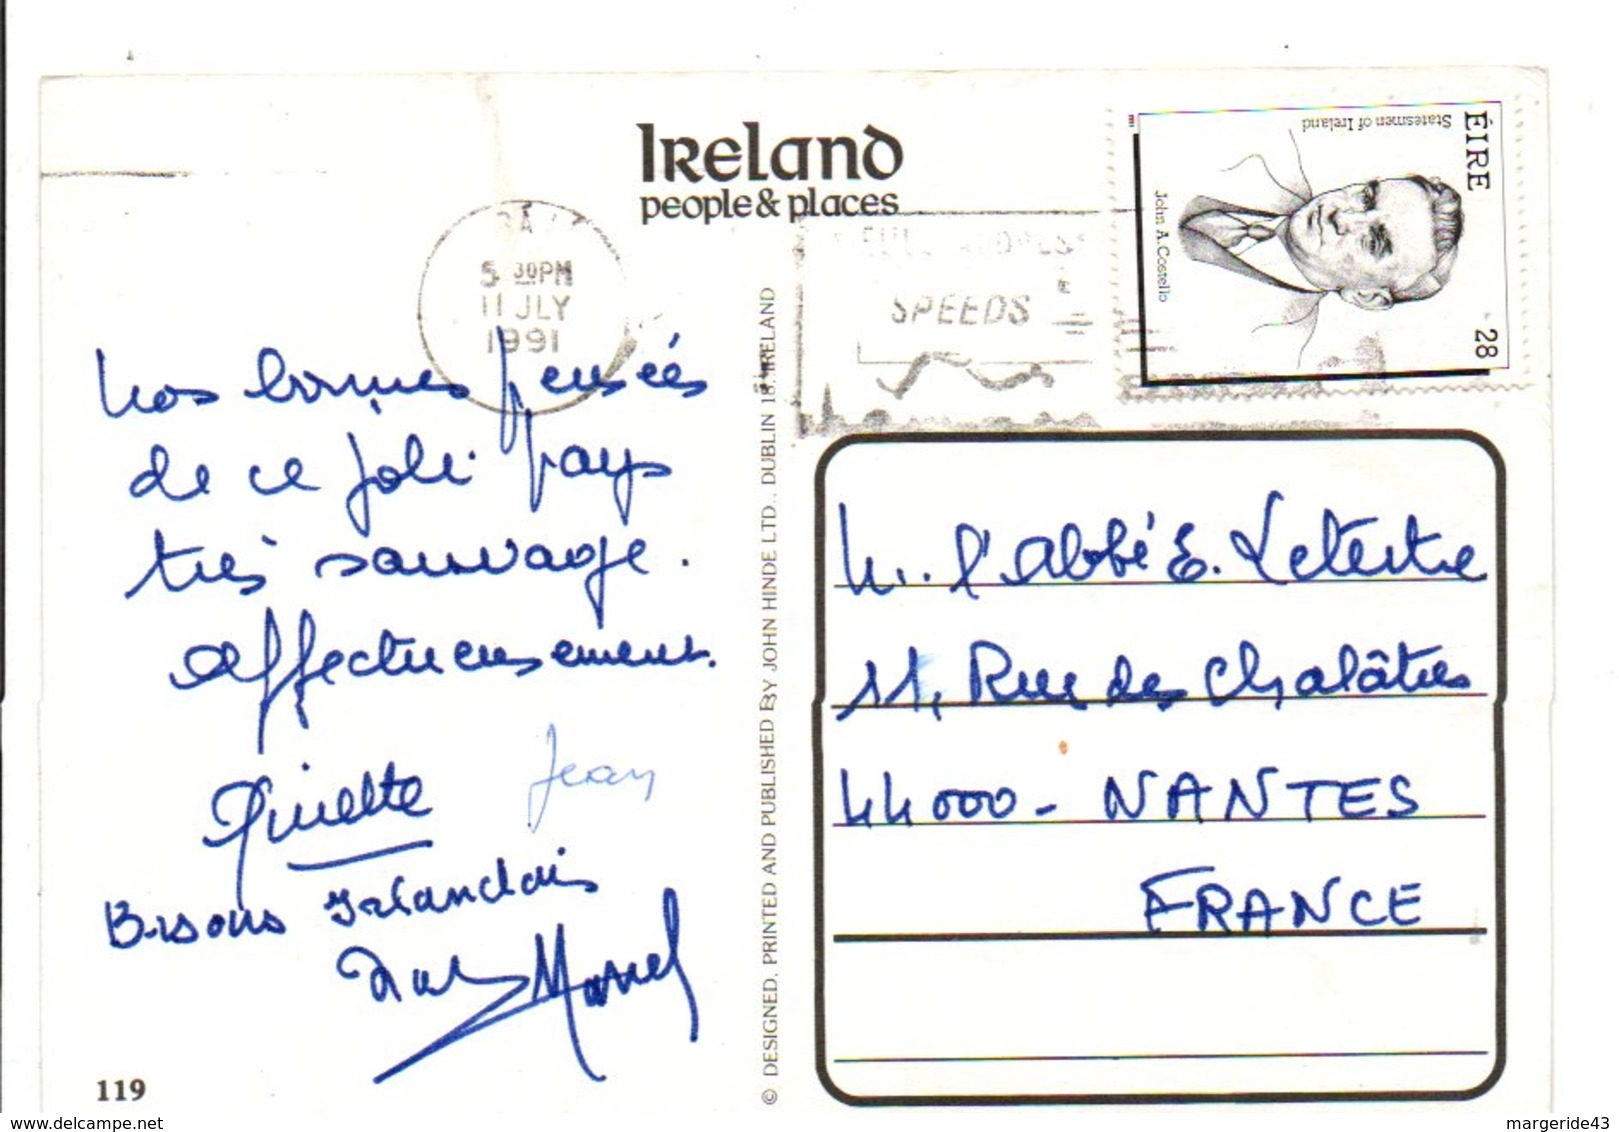 Ireland
people & places
5 30PM
11 JLY
1991
SPEEDS
ÉIRE
Statesmen of Ireland
John A. Costello
28
Nos bonnes pensées
de ce joli pays
très sauvage.
affectueusement.
Jean
Bisous Irlandais
Marcel
119
© DESIGNED, PRINTED AND PUBLISHED BY JOHN HINDE LTD., DUBLIN 18, IRELAND
M. l'Abbé E. Letertre
11, Rue des Chalâtres
44000 - NANTES
FRANCE
delcampe.net
margeride43